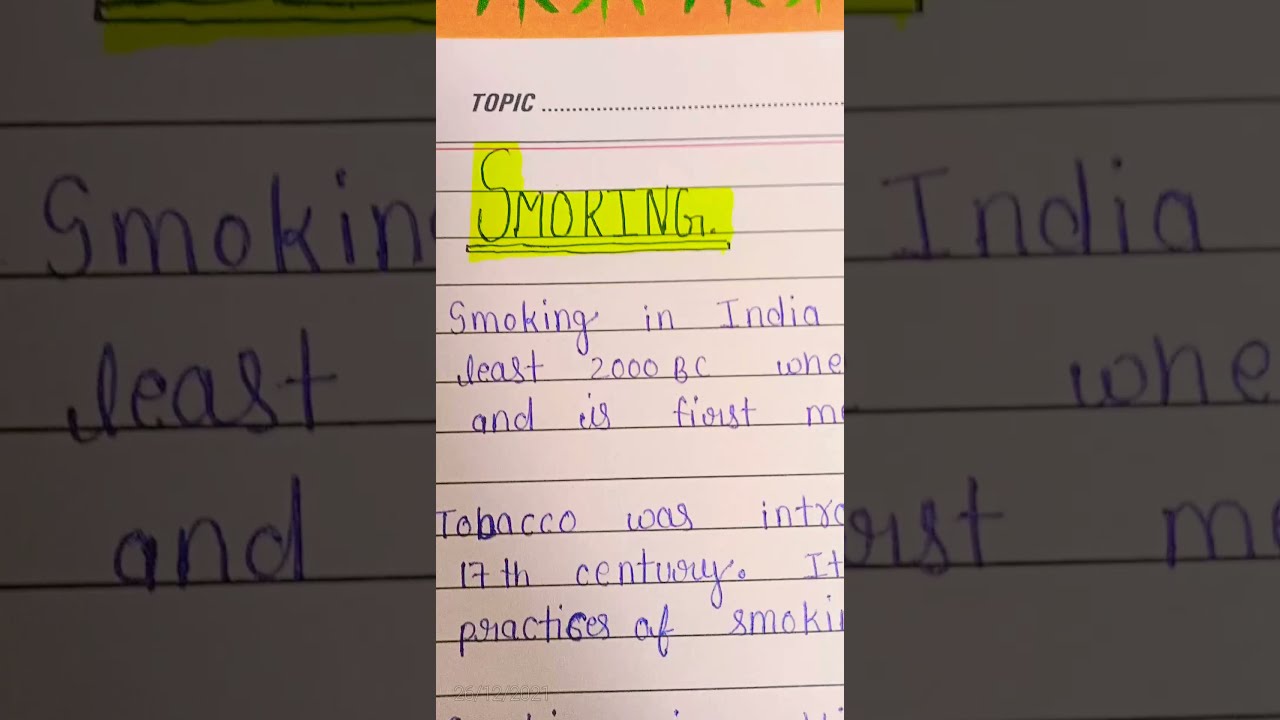 TOPIC
SMOKING.
Smoking in India
least 2000 BC whe
and is first m
Tobacco was intro
17th century. It
practices of smoki
26/12/2021